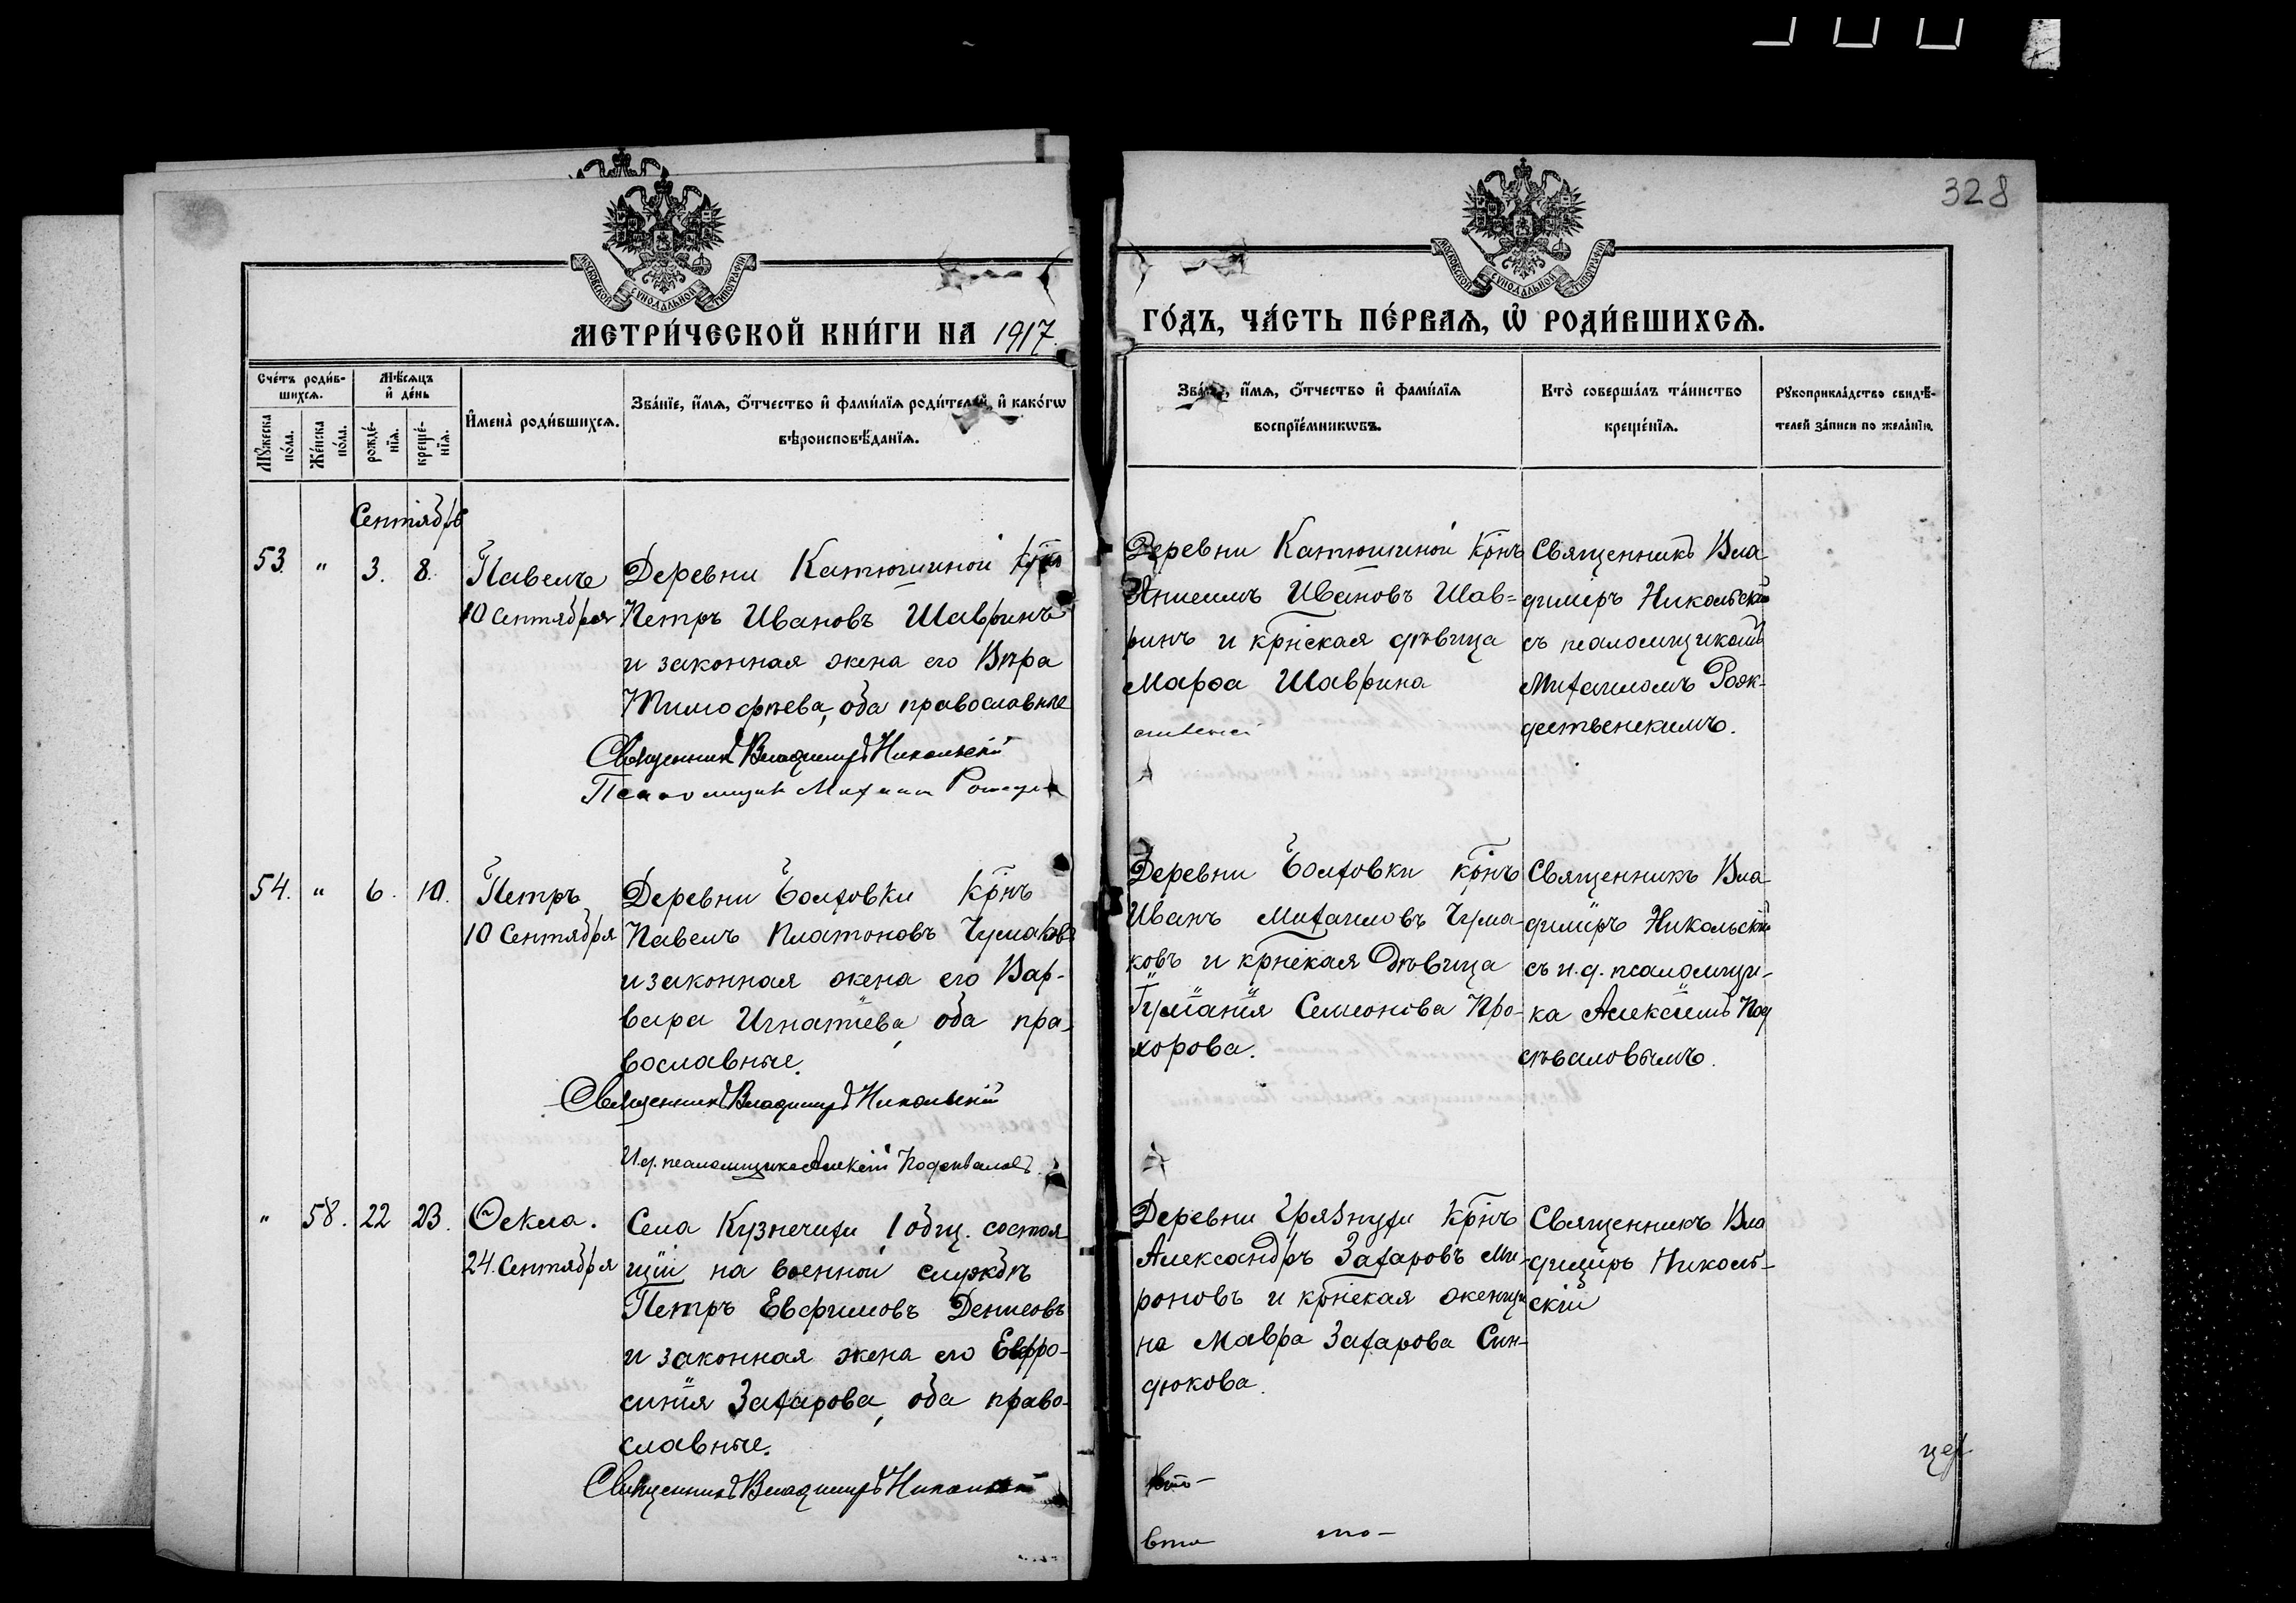 328
МОСКОВСКОЙ СѴНОДАЛЬНОЙ ТИПОГРАФІИ
МОСКОВСКОЙ СѴНОДАЛЬНОЙ ТИПОГРАФІИ
МЕТРИ́ЧЕСКОЙ КНИ́ГИ НА 1917.
ГО́ДЪ, ЧА́СТЬ ПЕ́РВАѦ, Ѽ РОДИ́ВШИХСѦ.
Сче́тъ роди́в-
шихсѧ.
Мꙋ́жеска
по́ла.
Же́нска
по́ла.
Мѣ́сѧцъ
и҆ де́нь
рожде́-
нїѧ.
креще́-
нїѧ.
И҆мена̀ роди́вшихсѧ.
Зва́нїе, и҆́мѧ, ѻ҆́тчество и҆ фамѝлїѧ роди́телей, и҆ како́гѡ
вѣроисповѣ́данїѧ.
Зва́нїе, и҆́мѧ, ѻ҆́тчество и҆ фами́лїѧ
воспрїе́мникѡвъ.
Кто̀ соверша́лъ та́инство
креще́нїѧ.
Рꙋкоприкла́дство свидѣ́-
телей за́писи по жела́нїю.
Сентябрь
53. " 3. 8. Павелъ
10 Сентября
Деревни Катюшиной крнъ
Петръ Ивановъ Шавринъ
и законная жена его Вѣра
Тимофѣева, оба православные
Священникъ Владимиръ Никольскій
Псаломщикъ Михаилъ
Деревни Катюшиной крнъ
Анисимъ Ивановъ Шав=
ринъ и крнская дѣвица
Марѳа Шаврина
Священникъ Вла-
диміръ Никольскій
съ псаломщикомъ
Михаиломъ Рож-
дественскимъ.
54. " 6. 10. Петръ
10 Сентября
Деревни Болховки крнъ
Павелъ Платоновъ Чумаковъ
и законная жена его Вар-
вара Игнатіева, оба пра-
вославные.
Священникъ Владимиръ Никольскій
И.д. псаломщика Алексій Подсѣваловъ.
Деревни Болховки крнъ
Иванъ Михаиловъ Чума-
ковъ и крнская дѣвица
Семионова Про-
хорова.
Священникъ Вла-
диміръ Никольскій
съ и.д. псаломщи-
ка Алексіемъ Под
сѣваловымъ.
" 58. 22 23. Ѳекла.
24. Сентября
Села Кузнечихи, 1 общ. состоя
щій на военной службѣ
Петръ Евфимовъ Денисовъ
и законная жена его Евфро-
синія Захарова, оба право-
славные.
Священникъ Владимиръ Никольскій
Деревни Грязнухи крнъ
Александръ Захаровъ Ми-
роновъ и крнская женщи
на Мавра Захарова Син-
дюкова.
Священникъ Вла
диміръ Николь-
скій